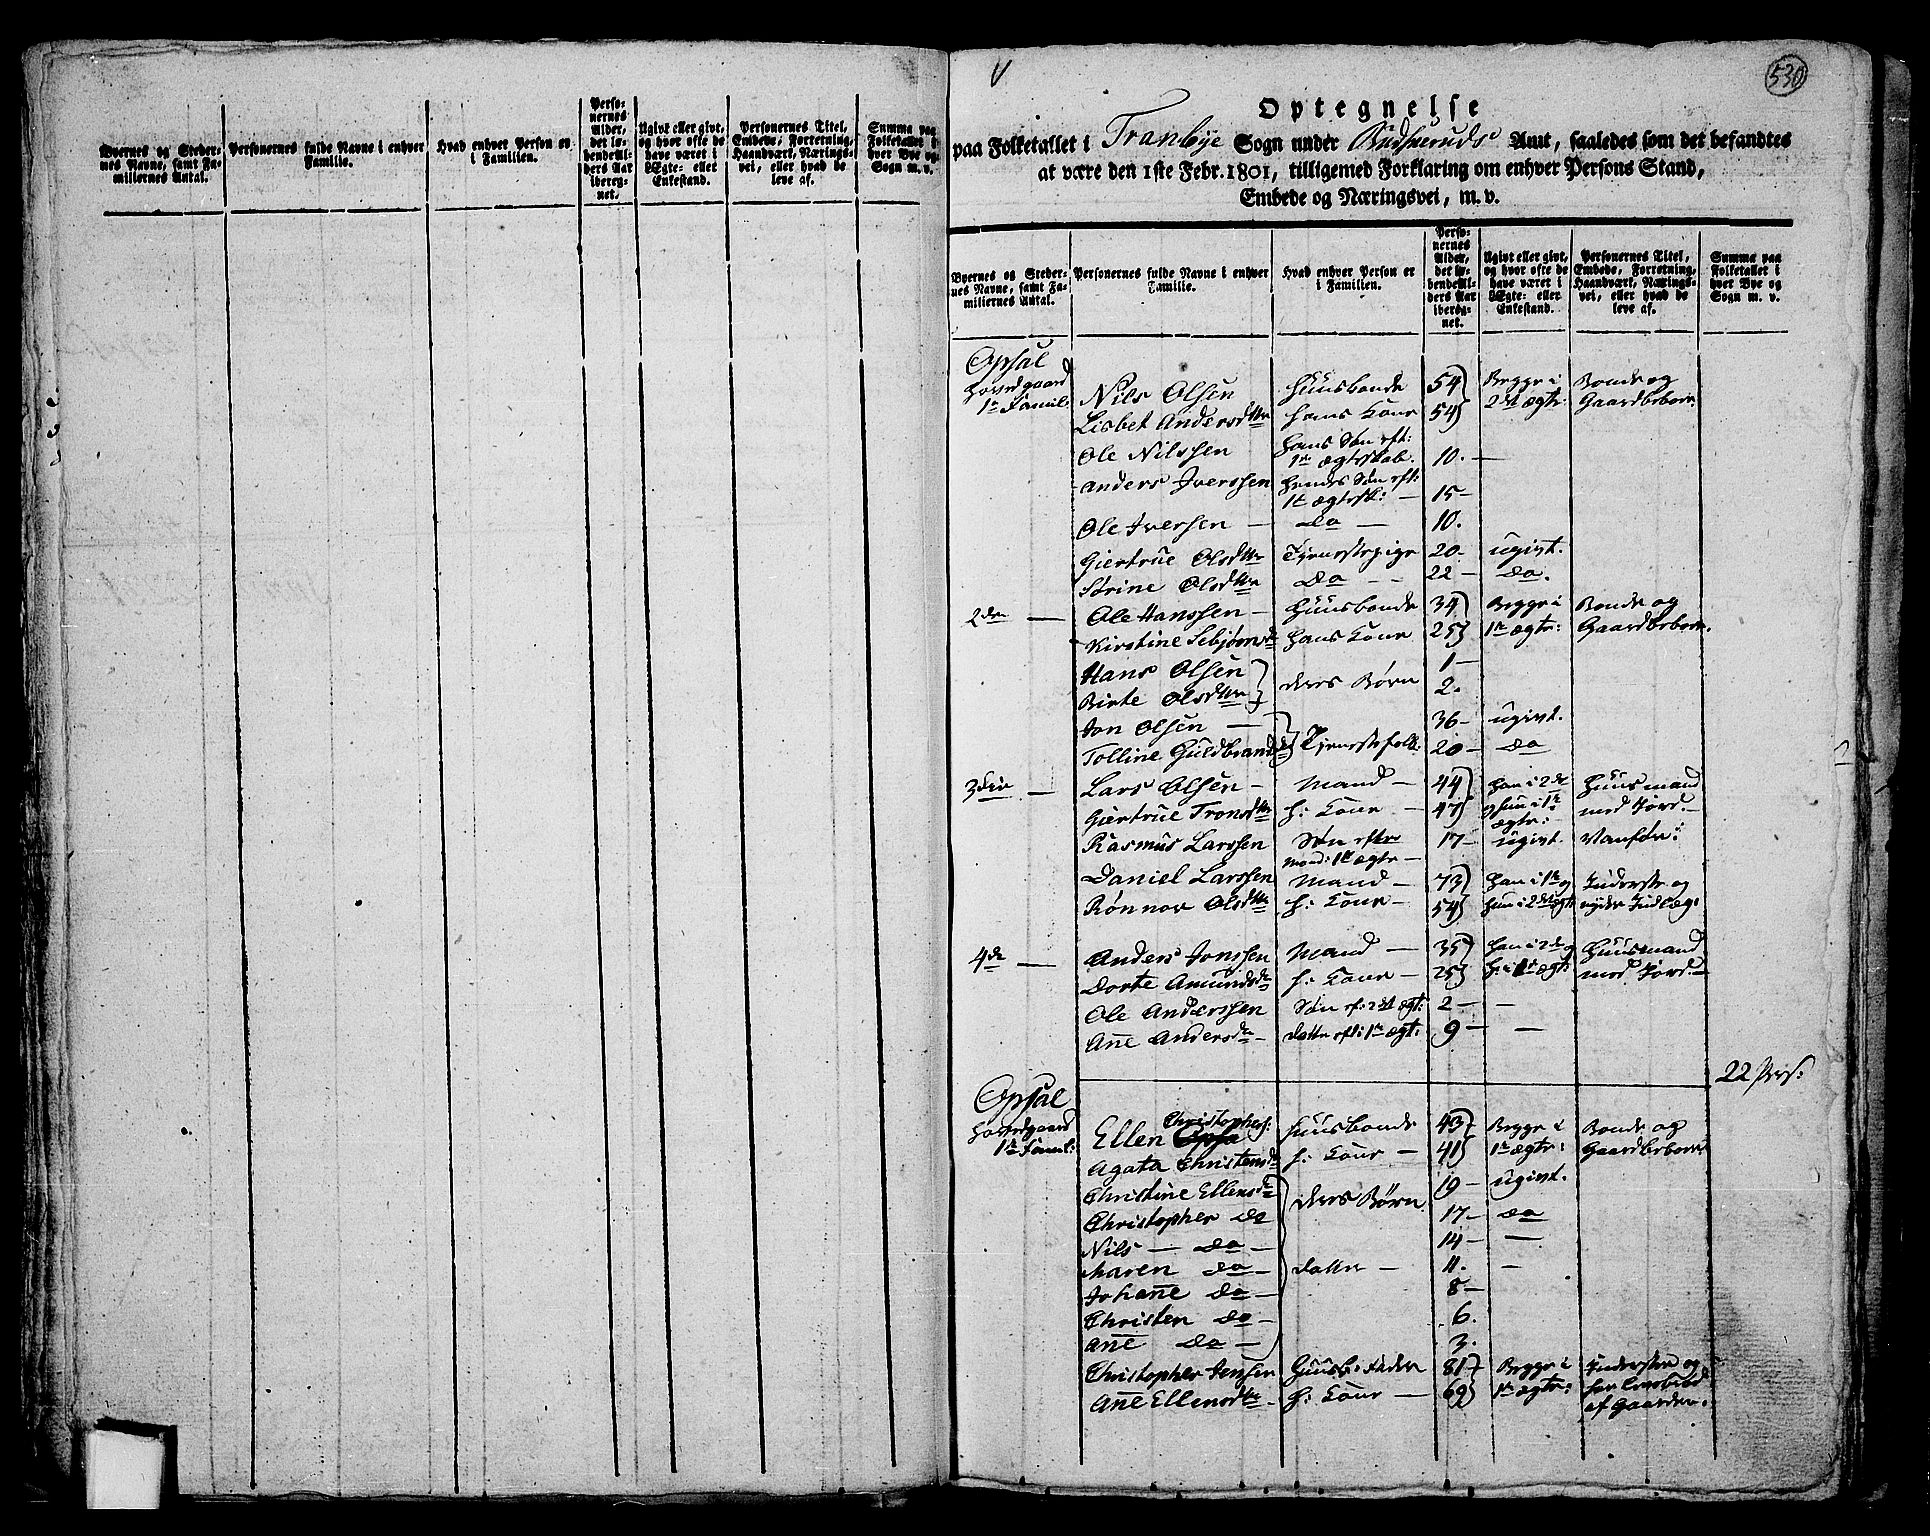 Byernes og Steder-
nes Navne, samt Fa-
miliernes Antal.
Personernes fulde Navne i enhver
Familie.
Hvad enhver Person er
i Familien.
Perso-
nernes
Alder,
det lø-
bende Al-
ders Aar
ibereg-
net.
Ugivt eller givt,
og hvor ofte de
have været i
Ægte- eller
Enkestand.
Personernes Titel,
Embede, Forretning,
Haandværk, Nærings-
vei, eller hvad de
leve af.
Summa paa
Folketallet i
hver Bye og
Sogn m. v.
530
Optegnelse
paa Folketallet i Tranbye Sogn under Budsneruds Amt, saaledes som det befandtes
at være den 1ste Febr. 1801, tilligemed Forklaring om enhver Persons Stand,
Embede og Næringsvei, m. v.
Byernes og Steder-
nes Navne, samt Fa-
miliernes Antal.
Personernes fulde Navne i enhver
Familie.
Hvad enhver Person er
i Familien.
Perso-
nernes
Alder,
det lø-
bende Al-
ders Aar
ibereg-
net.
Ugivt eller givt,
og hvor ofte de
have været i
Ægte- eller
Enkestand.
Personernes Titel,
Embede, Forretning,
Haandværk, Nærings-
vei, eller hvad de
leve af.
Summa paa
Folketallet i
hver Bye og
Sogn m. v.
Opsal
Hovedgaard
1te Famil. Nils Olsen Huusbonde 54 Begge i 2det Ægte: Bonde og Gaardbeboer
Lisbet Andersdttr hans Kone 54
Ole Nilssen hans Søn eft: 1te ægteskab. 10. —
Anders Iverssen hendes Søn eft: 1te ægtesk: — 15 —
Ole Iversen — do — 10.
Giertrue Olsdttr Tjenestepige 20 - ugivt.
Stine Olsdttr Do — 22 — do.
2den — Ole Hanssen — Huusbonde 34 Begge i 1te ægte: Bonde og Gaardbeboer.
Kirstine Sebjørnsd hans Kone 25
Hans Olsen deres Børn 1 —
Birte Olsdttr 2.
Jon Olsen — Tjenestefolk: 36 - ugivt.
Tolline Guldbrandsd 20 — do
3die — Lars Olsen — Mand — 44 han i 2de og hun i 1te ægte: Huusmand med Jord. —
Giertrue Tronsdttr h: Kone — 47
Rasmus Larssen Søn efter mand: 1te ægte — 17 — ugivt. Vanfør:
Daniel Larssen Mand — 73 han i 1te og hun i 2det ægt: Inderste og nyder Indlæg:
Rønnov Olsdttr h: Kone — 54
4de — Anders Jonssen Mand — 35 han i 2de og h: i 1te ægt: Huusmand med Jord. —
Dorte Amundsdr h: Kone — 25
Ole Anderssen Søn ef: 2det ægt: 2 — —
Añe Andersdr — datter eft: 1te ægt: 9 — —
22 Pers:
Opsal
Hovedgaard
1te Famil: Ellen Christophers: Huusbonde 43 Begge i 1te ægte: Bonde og Gaardbeboer
Agata Christensd h: Kone — 41
Christine Ellensd deres Børn 19 — ugivt.
Christopher do 17 — do
Nils — do — 14 — —
Maren do — datter — 11. —
Johañe do — 8 —
Christen do — 6.
Añe do — 3.
Christopher Jensen Huusb: Fader 81 Begge i 1te ægte: Inderster og har Levebrød af Gaarden.
Añe Ellensdttr. h: Kone — 69